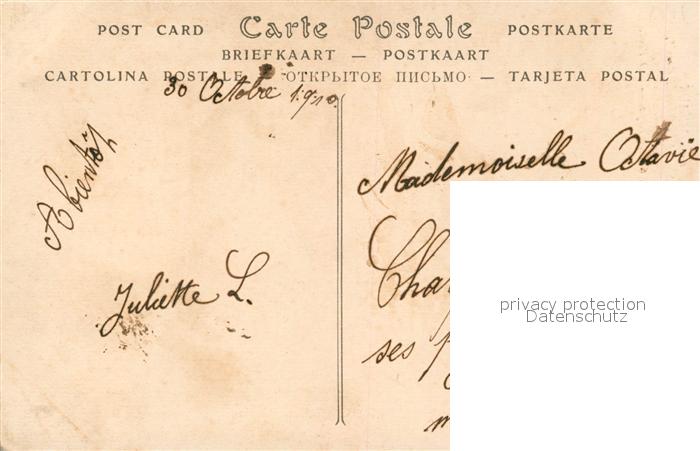 POST CARD Carte Postale POSTKARTE
BRIEFKAART — POSTKAART
CARTOLINA POSTALE — ОТКРЫТОЕ ПИСЬМО — TARJETA POSTAL
30 Octobre 1910.
A bientôt
Juliette L.
Mademoiselle Octavie
ses
privacy protection
Datenschutz